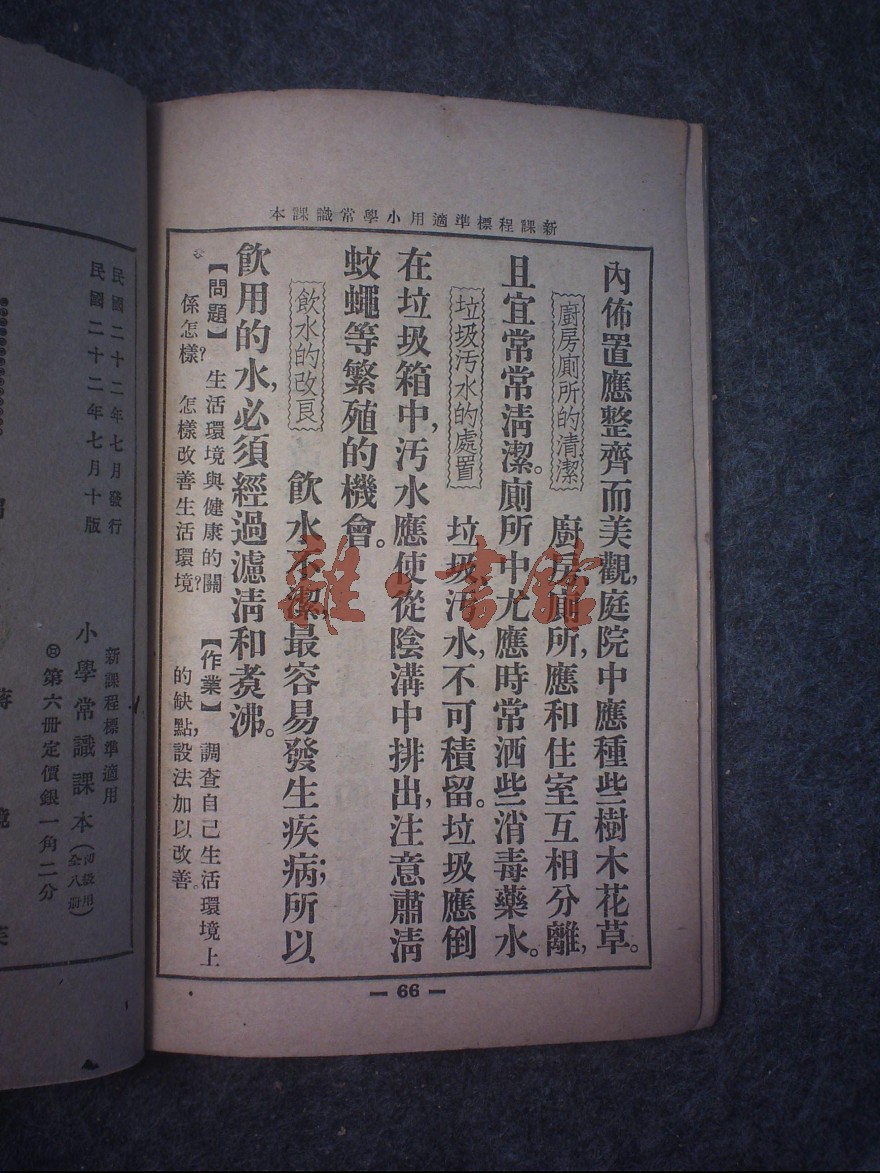 新課程標準適用小學常識課本
內佈置應整齊而美觀,庭院中應種些樹木花草。
廚房廁所的清潔 廚房廁所,應和住室互相分離,
且宜常常清潔。廁所中尤應時常洒些消毒藥水。
垃圾汚水的處置 垃圾,汚水,不可積留。垃圾應倒
在垃圾箱中,汚水應使從陰溝中排出,注意肅清
蚊蠅等繁殖的機會。
飲水的改良 飲水不潔,最容易發生疾病;所以
飲用的水,必須經過濾清和煑沸。
【問題】 生活環境與健康的關
係怎樣? 怎樣改善生活環境?
【作業】 調查自己生活環境上
的缺點,設法加以改善。
— 66 —
雜·書館
民國二十二年七月發行
民國二十二年七月十版
新課程標準適用
小學常識課本(初級用全八冊)
第六冊定價銀一角二分